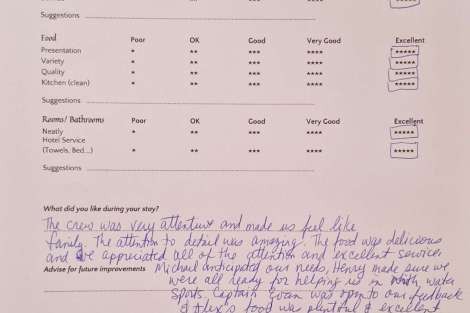 Suggestions
Food Poor OK Good Very Good Excellent
Presentation * ** *** **** *****
Variety * ** *** **** *****
Quality * ** *** **** *****
Kitchen (clean) * ** *** **** *****
Suggestions
Rooms/ Bathrooms Poor OK Good Very Good Excellent
Neatly * ** *** **** *****
Hotel Service
(Towels, Bed...) * ** *** **** *****
Suggestions
What did you like during your stay?
The crew was very attentive and made us feel like
family. The attention to detail was amazing. The food was delicious
and we appreciated all of the attention and excellent service.
Advise for future improvements Michail anticipated our needs, Henry made sure we
were all ready for helping us in with water
sports. Captain Evan was open to our feedback
& Alex's food was plentiful & excellent